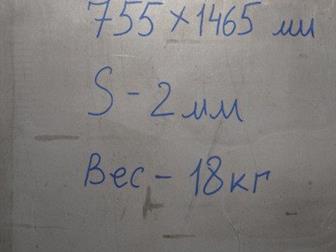 755×1465 мм
S - 2 мм
Вес - 18кг